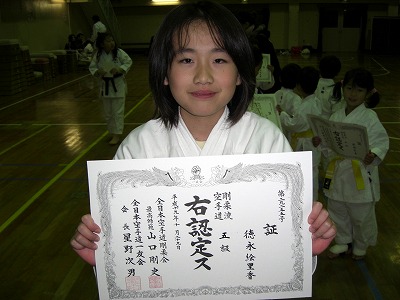 証
徳永絵里香
剛柔流
空手道
五級
右認定ス
平成十九年十一月二十九日
全日本空手道剛柔会
最高師範 山口剛史
全日本空手道一友会
会長 星野次男